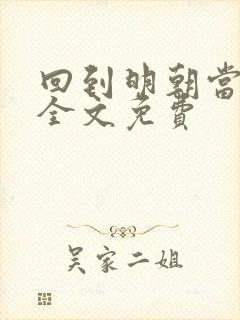 回到明朝當
全文免費
吴家二姐